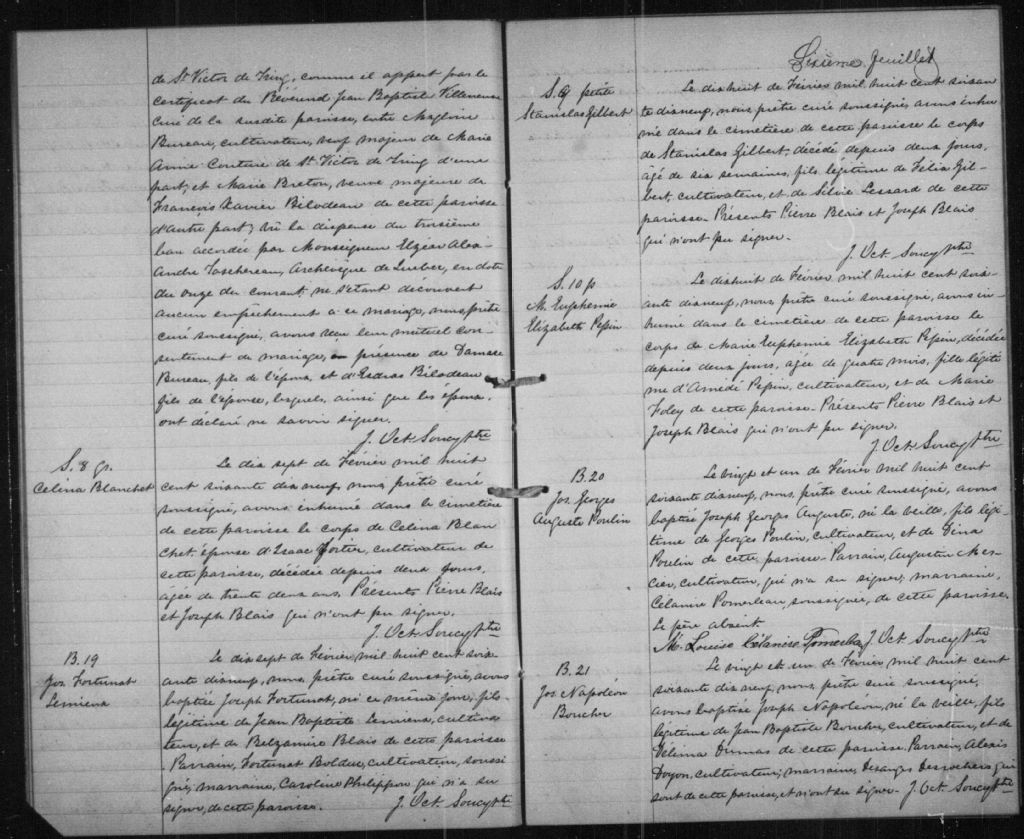 de St Victor de Tring, comme il appert par le
certificat du Révérend Jean Baptiste Villeneuve
curé de la susdite paroisse, entre Magloire
Bureau, cultivateur, veuf majeur de Marie
Anne Couture de St Victor de Tring d'une
part; et Marie Breton, veuve majeure de
François Xavier Bilodeau de cette paroisse
d'autre part; vû la dispense du troisième
ban accordée par Monseigneur Elzéar Alex-
andre Taschereau, Archevêque de Québec, en date
du onze du courant; ne s'étant découvert
aucun empêchement à ce mariage, nous, prêtre
curé soussigné, avons reçu leur mutuel con-
sentement de mariage, en présence de Damase
Bureau, fils de l'époux, et d'Esdras Bilodeau
fils de l'épouse, lesquels, ainsi que les époux,
ont déclaré ne savoir signer.
J. Oct. Soucy Ptre
S. 8 gr.
Celina Blanchet
Le dix sept de Février mil huit
cent soixante dix neuf, nous, prêtre curé
soussigné, avons inhumé dans le cimetière
de cette paroisse le corps de Celina Blan
chet, épouse d'Isaac Fortier, cultivateur de
cette paroisse, décédée depuis deux jours,
âgée de trente deux ans. Présents Pierre Blais
et Joseph Blais qui n'ont pu signer.
J. Oct. Soucy Ptre
B. 19
Jos. Fortunat
Lemieux
Le dix sept de Février mil huit cent soix-
ante dix neuf, nous, prêtre curé soussigné, avons
baptisé Joseph Fortunat, né ce même jour, fils
légitime de Jean Baptiste Lemieux, cultiva-
teur, et de Belzamire Blais de cette paroisse
Parrain, Fortunat Bolduc, cultivateur, soussi
gné; marraine, Caroline Philippon qui n'a su
signer, de cette paroisse. J. Oct. Soucy Ptre
Sixième feuillet
S. 9 petite
Stanislas Gilbert
Le dix huit de Février mil huit cent soixan
te dix neuf, nous, prêtre curé soussigné, avons inhu
mé dans le cimetière de cette paroisse le corps
de Stanislas Gilbert, décédé depuis deux jours,
âgé de six semaines, fils légitime de Félix Gil-
bert, cultivateur, et de Silvie Lessard de cette
paroisse. Présents Pierre Blais et Joseph Blais
qui n'ont pu signer.
J. Oct. Soucy Ptre
S. 10 p
M. Euphemie
Elizabeth Pepin
Le dix huit de Février mil huit cent soix-
ante dix neuf, nous, prêtre curé soussigné, avons in-
humé dans le cimetière de cette paroisse le
corps de Marie Euphemie Elizabeth Pepin, décédée
depuis deux jours, âgée de quatre mois, fille légiti
me d'Amédé Pepin, cultivateur, et de Marie
Foley de cette paroisse. Présents Pierre Blais et
Joseph Blais qui n'ont pu signer.
J. Oct. Soucy Ptre
B. 20
Jos. Georges
Auguste Poulin
Le vingt et un de Février mil huit cent
soixante dix neuf, nous, prêtre curé soussigné, avons
baptisé Joseph Georges Auguste, né la veille, fils légi-
time de Georges Poulin, cultivateur, et de Dina
Poulin de cette paroisse. Parrain, Augustin Mer-
cier, cultivateur, qui n'a su signer; marraine,
Célanire Pomerleau, soussignée, de cette paroisse.
Le père absent.
M. Louise Célanire Pomerleau J. Oct. Soucy Ptre
B. 21
Jos. Napoléon
Boucher
Le vingt et un de Février mil huit cent
soixante dix neuf, nous, prêtre curé soussigné,
avons baptisé Joseph Napoléon, né la veille, fils
légitime de Jean Baptiste Boucher, cultivateur, et de
Délima Dumas de cette paroisse. Parrain, Alexis
Doyon, cultivateur; marraine, Desanges Desrochers qui
sont de cette paroisse, et n'ont su signer. J. Oct. Soucy Ptre